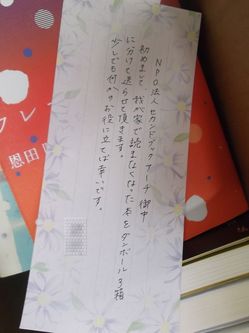 NPO法人 セカンドブックアーチ 御中
初めまして 我が家で読まなくなった本をダンボール3箱
に分けて送らせて頂きます。
少しでも何かのお役に立てば幸いです。
フレ
恩田